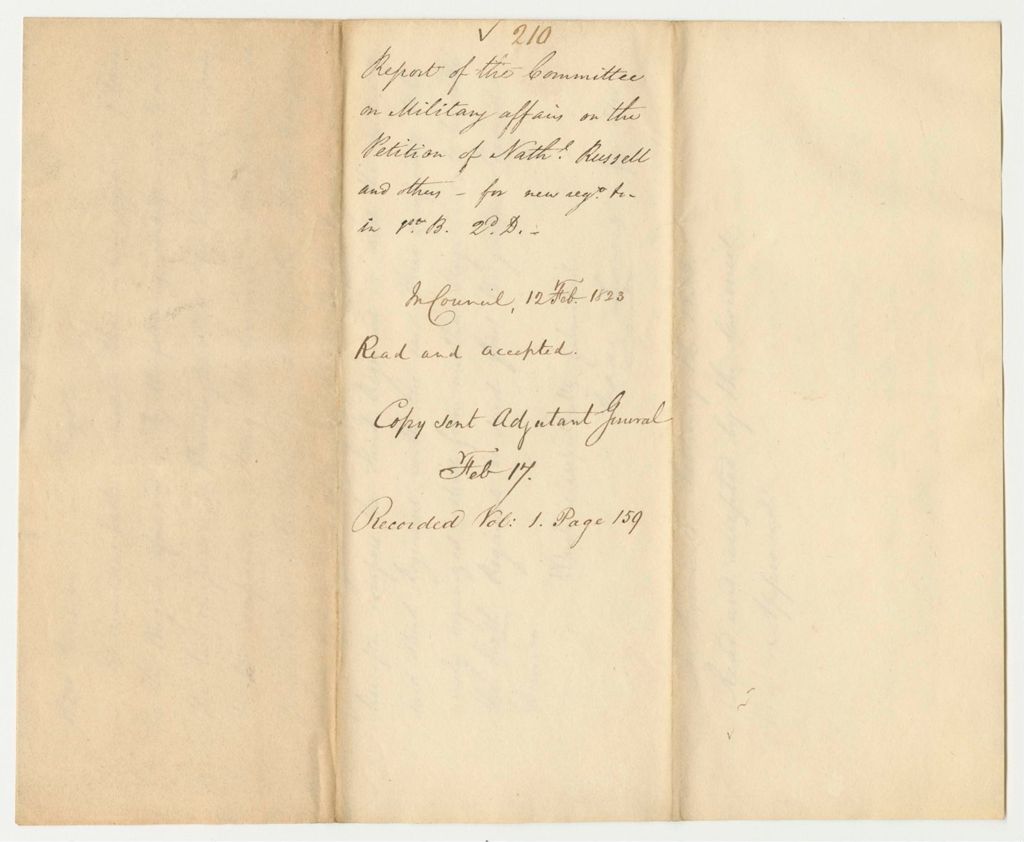 ✓ 210
Report of the Committee
on Military affairs on the
Petition of Nathl. Russell
and others - for new regt. &c-
in 1st B. 2d. D. -
In Council, 12 Feb. 1823
Read and accepted.
Copy sent Adjutant General
Feb 17.
Recorded Vol: 1. Page 159